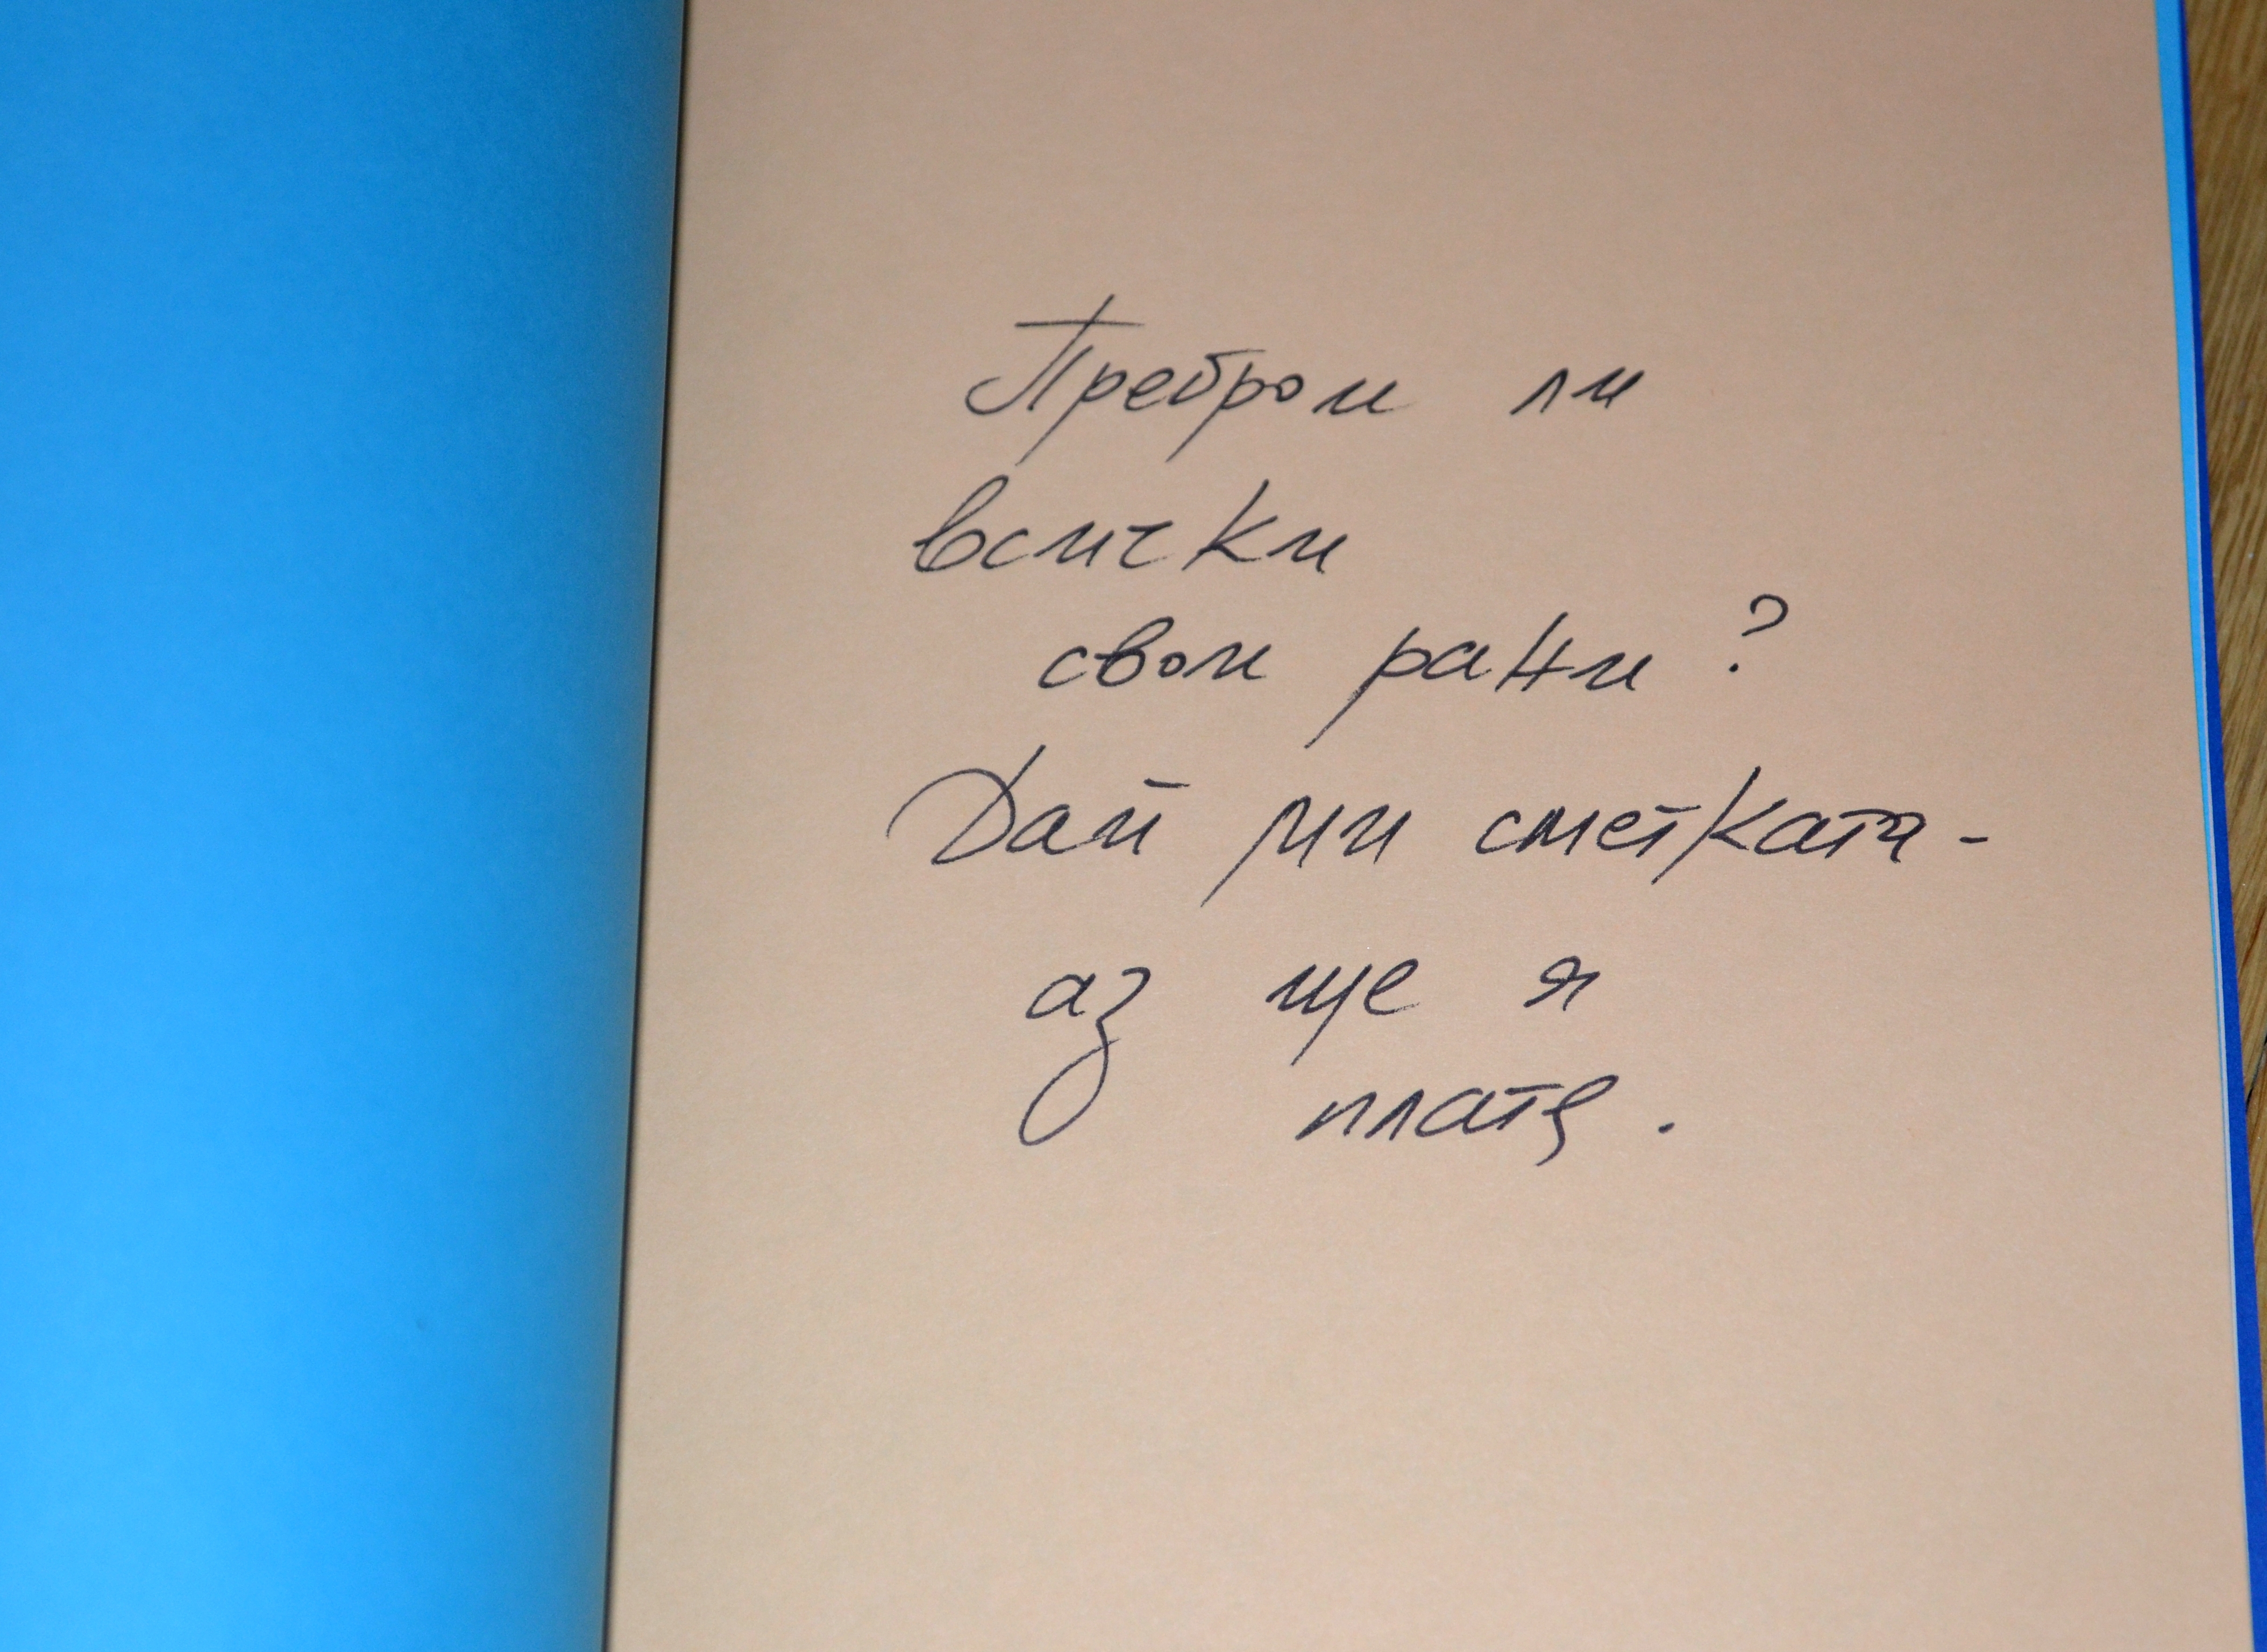 Преброи ли
всички
свои рани?
Дай ми сметката -
аз ще я
платя.